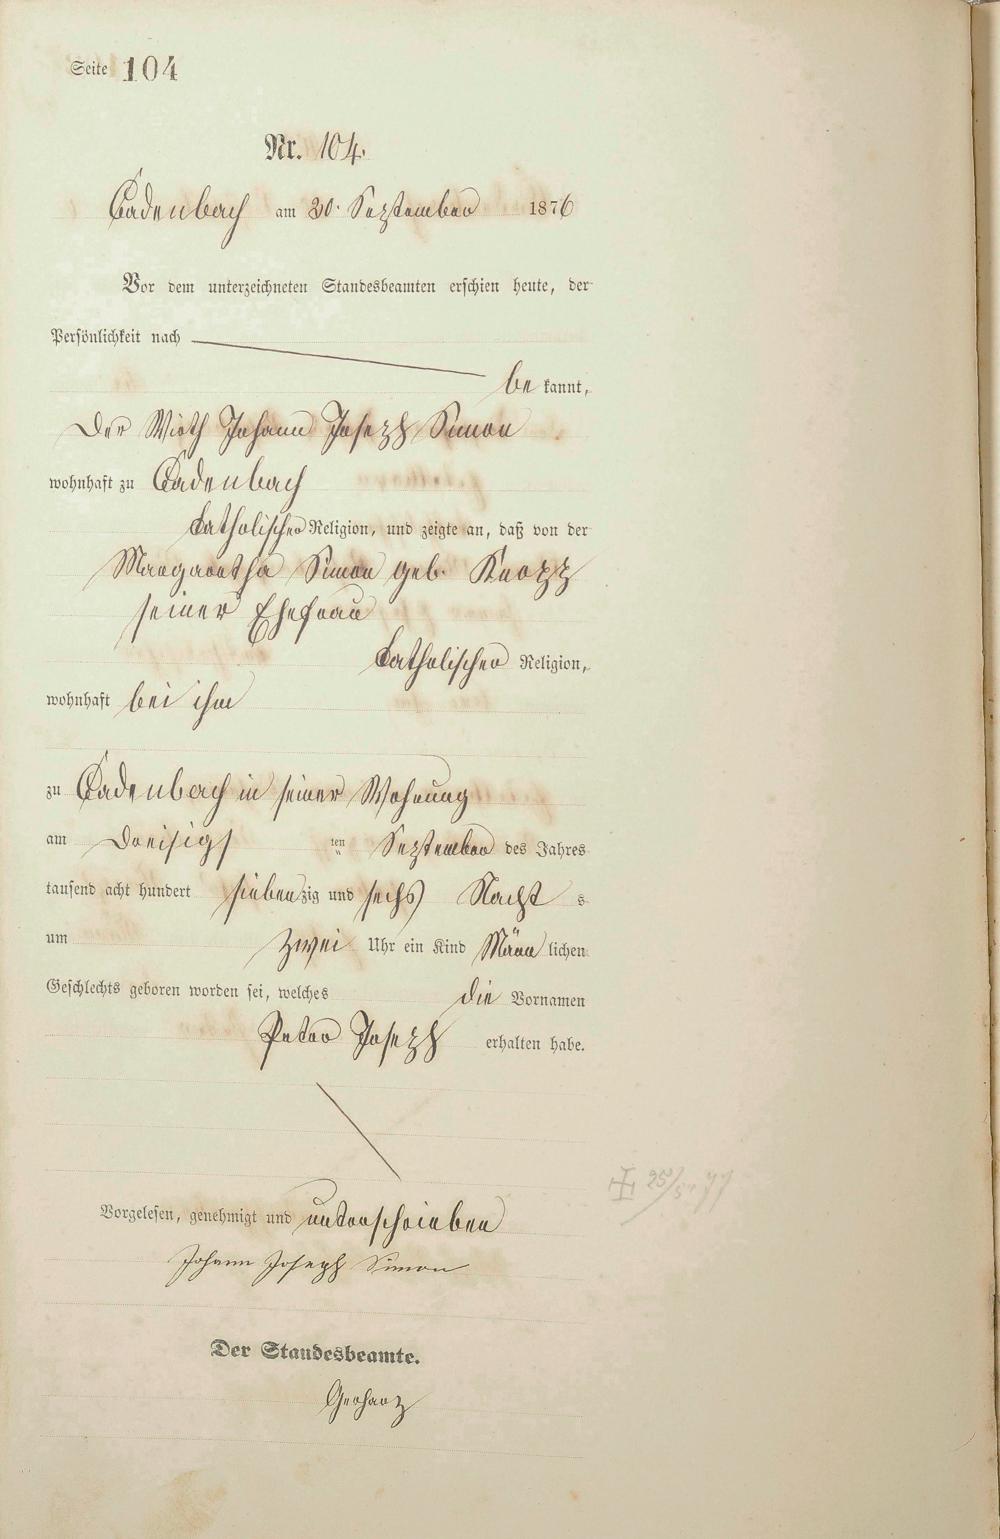 Seite 104
Nr. 104.
Cadenbach am 30. September 1876
Vor dem unterzeichneten Standesbeamten erschien heute, der
Persönlichkeit nach
be kannt,
Der Wirth Johann Joseph Simon
wohnhaft zu Cadenbach
katholischer Religion, und zeigte an, daß von der
Margaretha Simon geb. Knopp
seiner Ehefrau
katholischer Religion,
wohnhaft bei ihm
zu Cadenbach in seiner Wohnung
am Dreisigs ten September des Jahres
tausend acht hundert sieben zig und sechs Nacht s
um Zwei Uhr ein Kind Männ lichen
Geschlechts geboren worden sei, welches die Vornamen
Peter Joseph erhalten habe.
25/5 77
Vorgelesen, genehmigt und unterschrieben
Johann Joseph Simon
Der Standesbeamte.
Gerharz